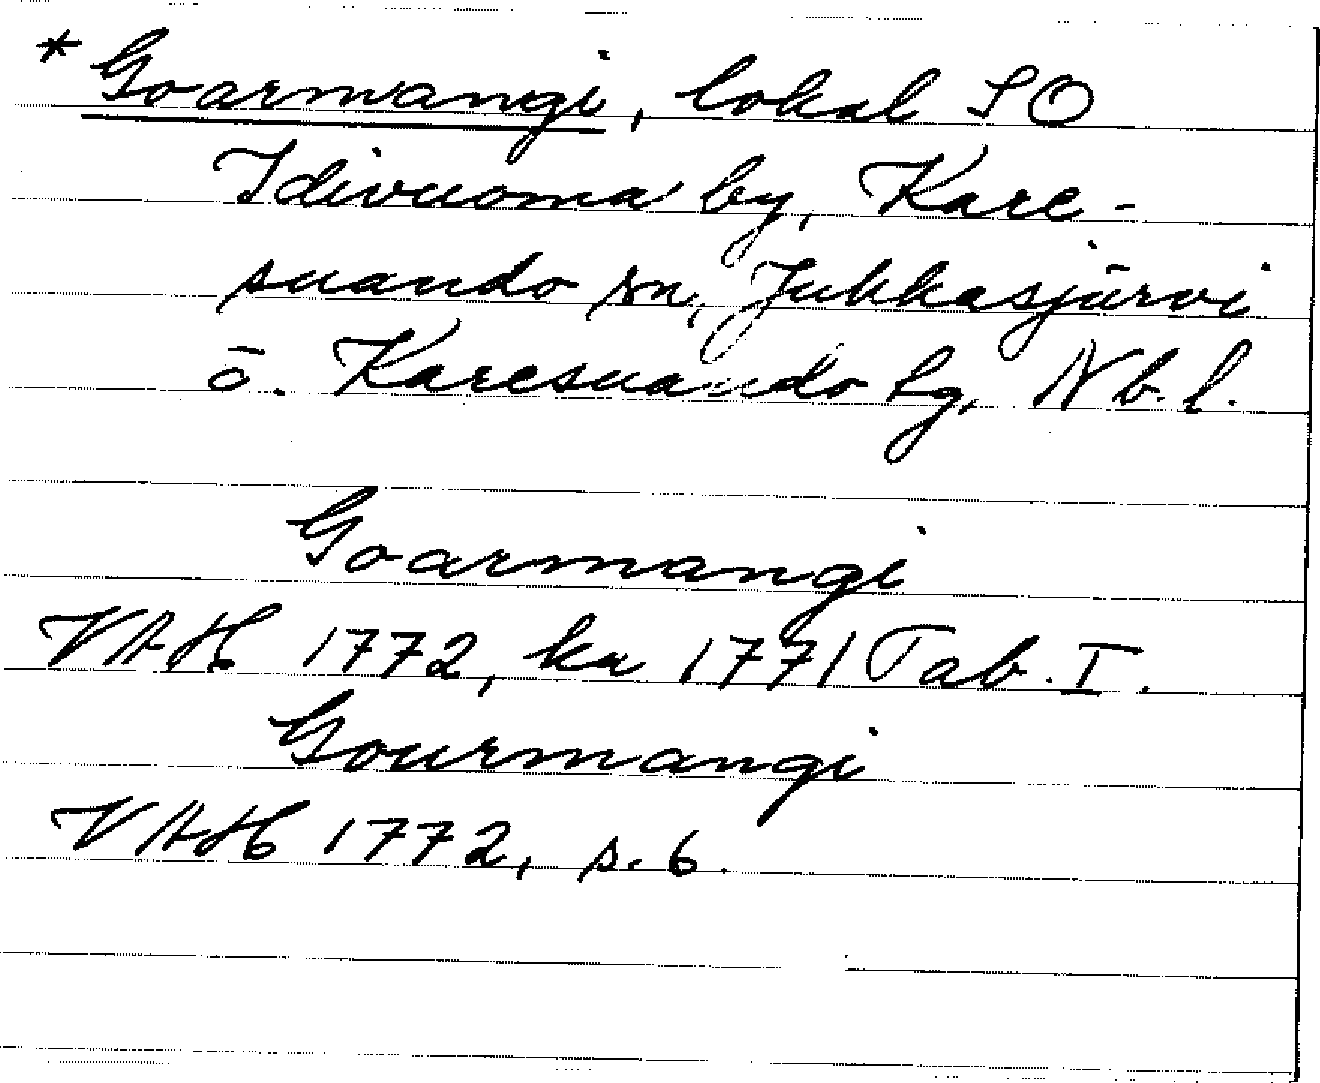 *Goarmangi, lokal SO
Idivuoma by, Kare-
suando sn, Jukkasjärvi
o. Karesuando tg, Nb. l.
Goarmangi
VAH 1772, ka 1771 Tab. I.
Gourmangi
VAH 1772, s. 6.